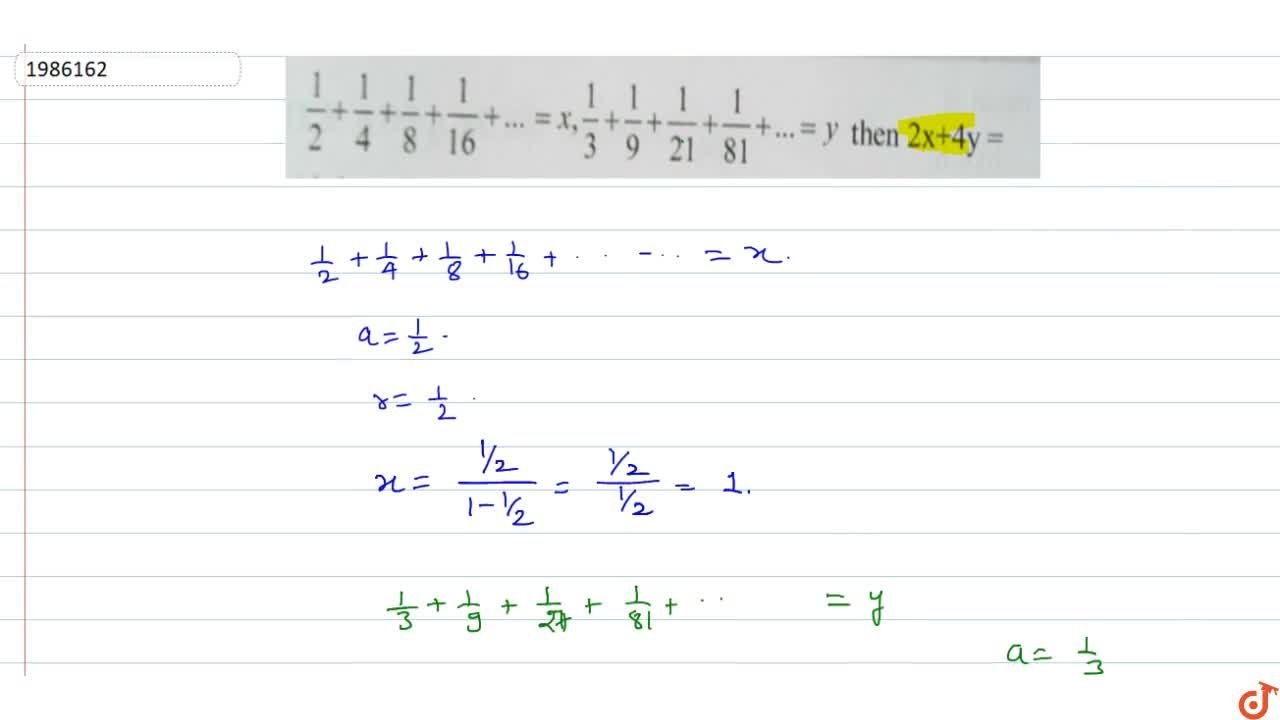 1986162
1/2 + 1/4 + 1/8 + 1/16 + ... = x, 1/3 + 1/9 + 1/21 + 1/81 + ... = y then 2x+4y =
1/2 + 1/4 + 1/8 + 1/16 + . . - .. = x.
a = 1/2 .
r = 1/2 .
x = (1/2)/(1 - 1/2) = (1/2)/(1/2) = 1.
1/3 + 1/9 + 1/27 + 1/81 + .. = y
a = 1/3